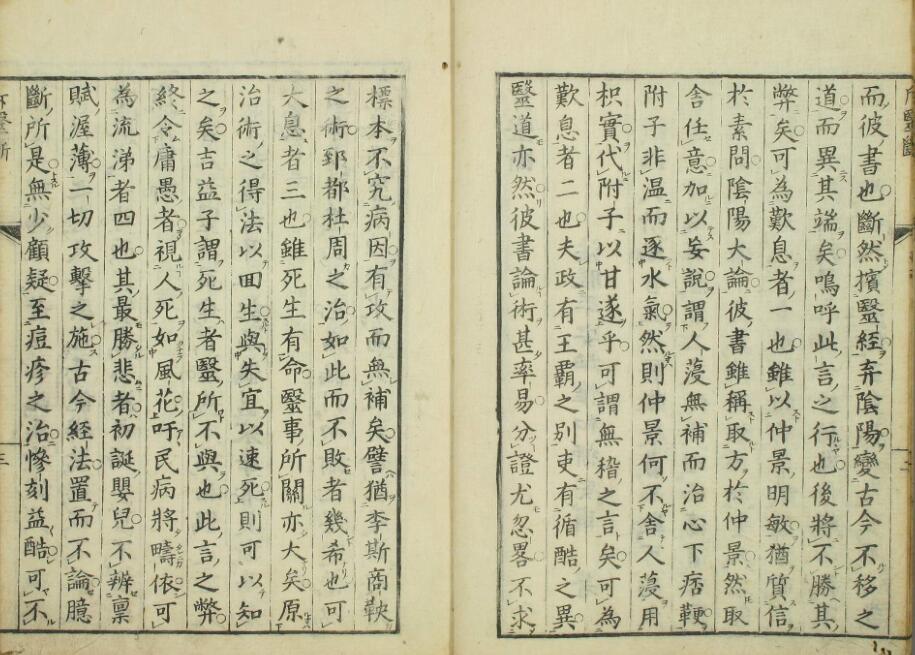 而彼書也斷然擯醫經弃陰陽變古今不移之
道而異其端矣嗚呼此言之行也後將不勝其
弊矣可為歎息者一也雖以仲景明敏猶質信
於素問陰陽大論彼書雖稱取方於仲景然取
舍任意加以妄說謂人薓無補而治心下痞鞕
附子非温而逐水氣然則仲景何不舍人薓用
枳實代附子以甘遂乎可謂無稽之言矣可為
歎息者二也夫政有王霸之别吏有循酷之異
醫道亦然彼書論術甚率易分證尤忽畧不求
標本不究病因有攻而無補矣譬猶李斯商鞅
之術郅都杜周之治如此而不敗者幾希也可
大息者三也雖死生有命醫事所關亦大矣原
治術之得法以回生與失宜以速死則可以知
之矣吉益子謂死生者醫所不與也此言之弊
終令庸愚者視人死如風花吁民病將疇依可
為流涕者四也其最勝悲者初誕嬰兒不辨稟
賦渥薄一切攻擊之施古今經法置而不論臆
斷所是無少顧疑至痘疹之治慘刻益酷可不